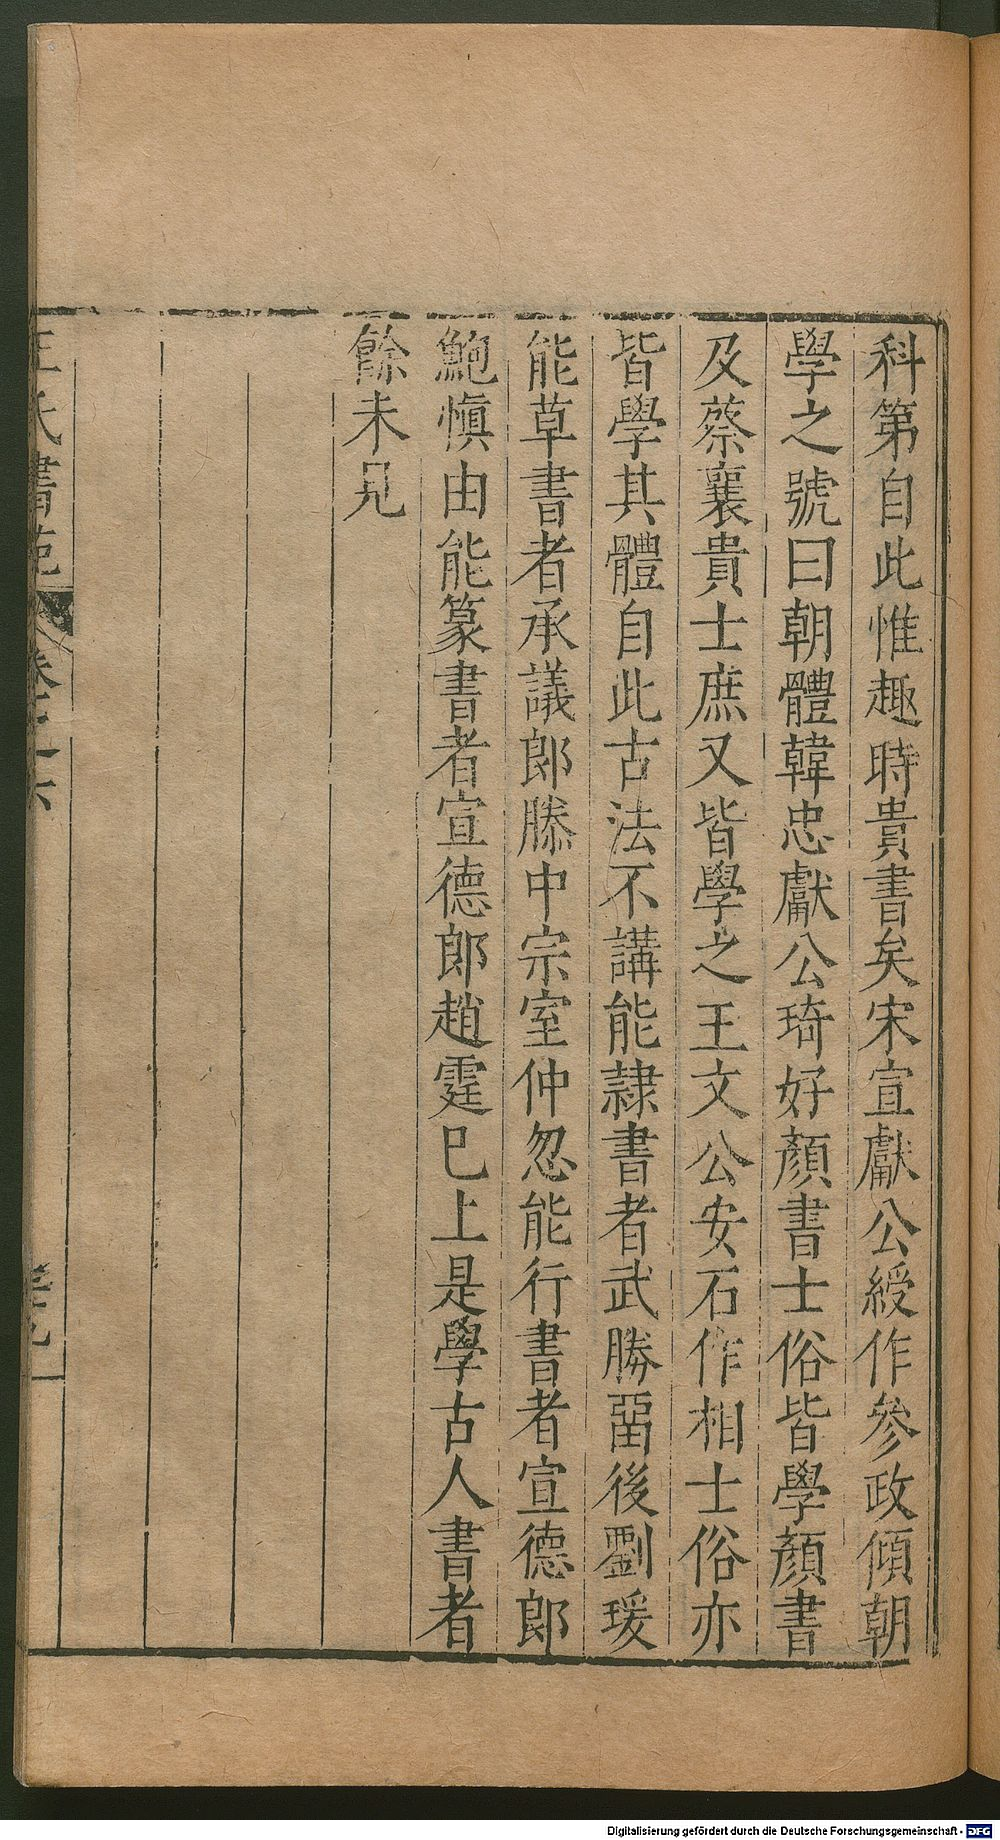 科第自此惟趣時貴書矣宋宣獻公綬作參政傾朝
學之號曰朝體韓忠獻公琦好顏書士俗皆學顏書
及蔡襄貴士庶又皆學之王文公安石作相士俗亦
皆學其體自此古法不講能隸書者武勝畱後劉瑗
能草書者承議郎滕中宗室仲忽能行書者宣德郎
鮑愼由能篆書者宣德郎趙霆巳上是學古人書者
餘未見
王氏書苑 卷之六
Digitalisierung gefördert durch die Deutsche Forschungsgemeinschaft - DFG